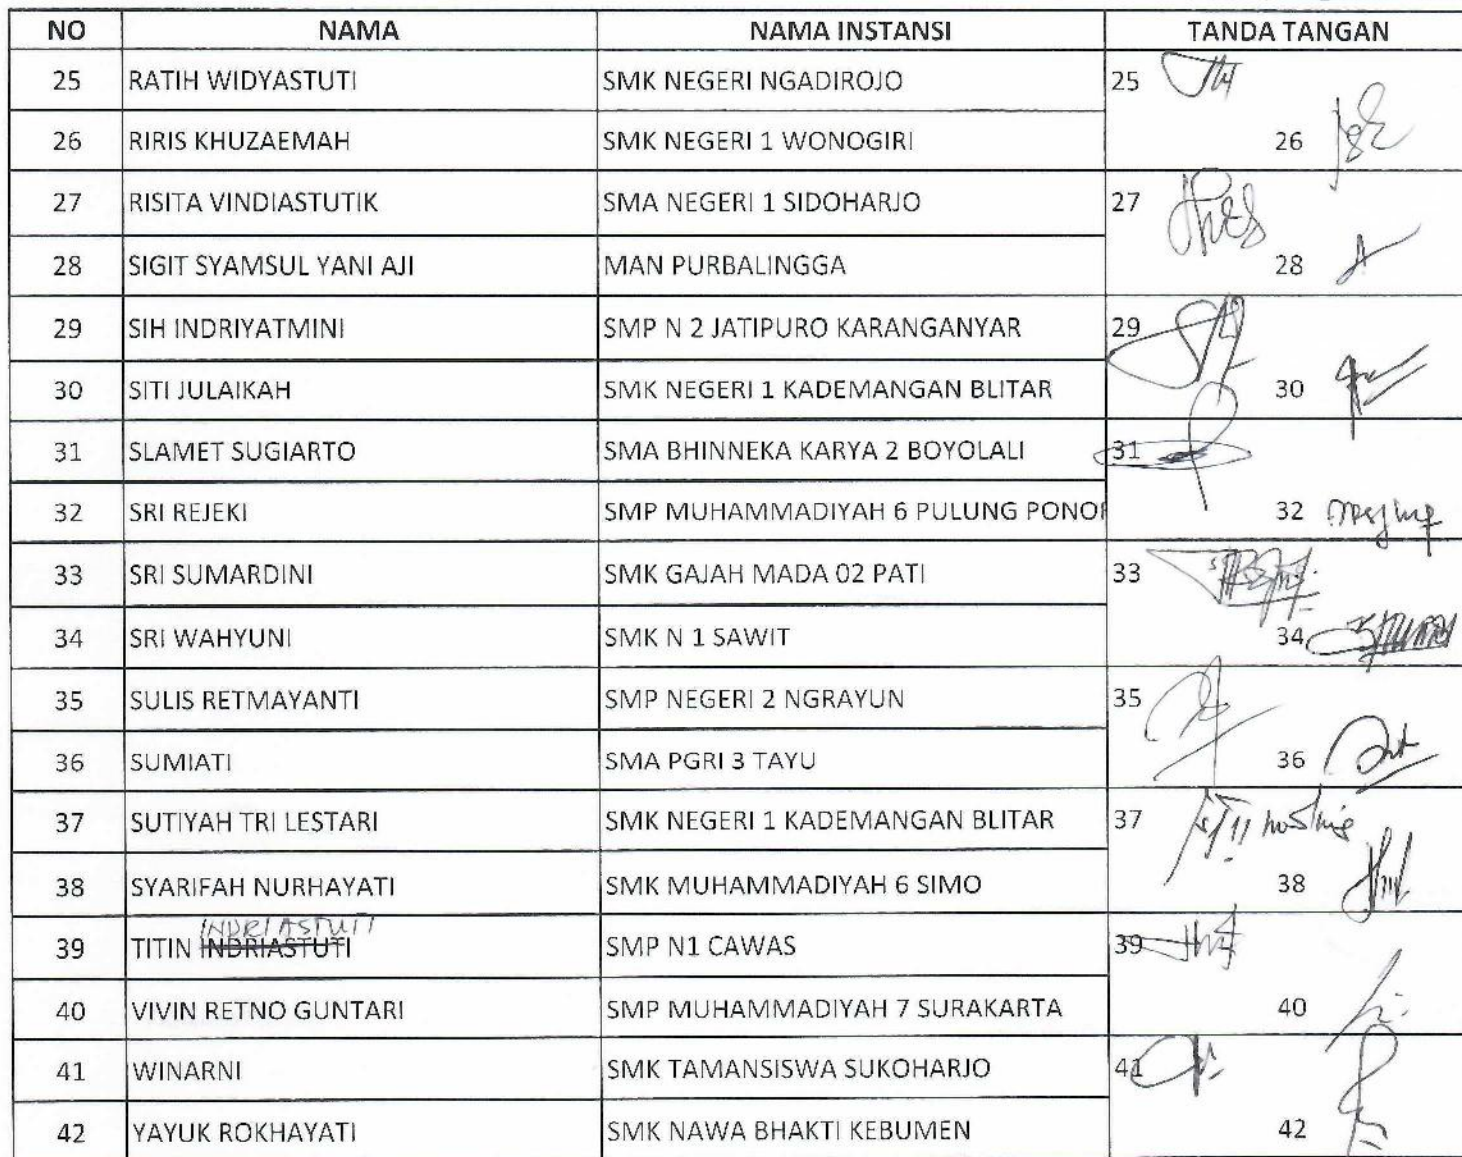 NO NAMA NAMA INSTANSI TANDA TANGAN
25 RATIH WIDYASTUTI SMK NEGERI NGADIROJO 25
26 RIRIS KHUZAEMAH SMK NEGERI 1 WONOGIRI 26
27 RISITA VINDIASTUTIK SMA NEGERI 1 SIDOHARJO 27
28 SIGIT SYAMSUL YANI AJI MAN PURBALINGGA 28
29 SIH INDRIYATMINI SMP N 2 JATIPURO KARANGANYAR 29
30 SITI JULAIKAH SMK NEGERI 1 KADEMANGAN BLITAR 30
31 SLAMET SUGIARTO SMA BHINNEKA KARYA 2 BOYOLALI 31
32 SRI REJEKI SMP MUHAMMADIYAH 6 PULUNG PONOR 32
33 SRI SUMARDINI SMK GAJAH MADA 02 PATI 33
34 SRI WAHYUNI SMK N 1 SAWIT 34
35 SULIS RETMAYANTI SMP NEGERI 2 NGRAYUN 35
36 SUMIATI SMA PGRI 3 TAYU 36
37 SUTIYAH TRI LESTARI SMK NEGERI 1 KADEMANGAN BLITAR 37
38 SYARIFAH NURHAYATI SMK MUHAMMADIYAH 6 SIMO 38
INDRIASTUTI
39 TITIN INDRIASTUTI SMP N1 CAWAS 39
40 VIVIN RETNO GUNTARI SMP MUHAMMADIYAH 7 SURAKARTA 40
41 WINARNI SMK TAMANSISWA SUKOHARJO 41
42 YAYUK ROKHAYATI SMK NAWA BHAKTI KEBUMEN 42